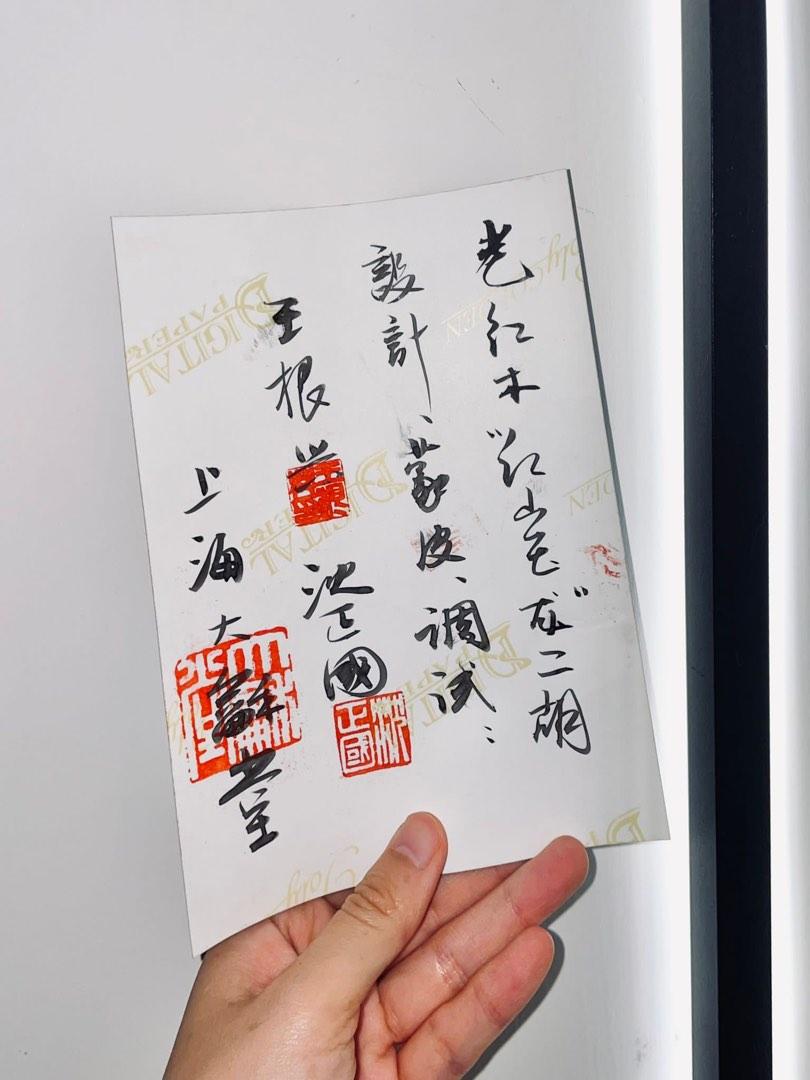 老红木“红山玉龙”二胡
設計、蒙皮、调试：
王根兴
沈正國
上海大蘇
沈正國
DIGITAL
PAPER
DIGITAL
PAPER
DIGITAL
PAPER